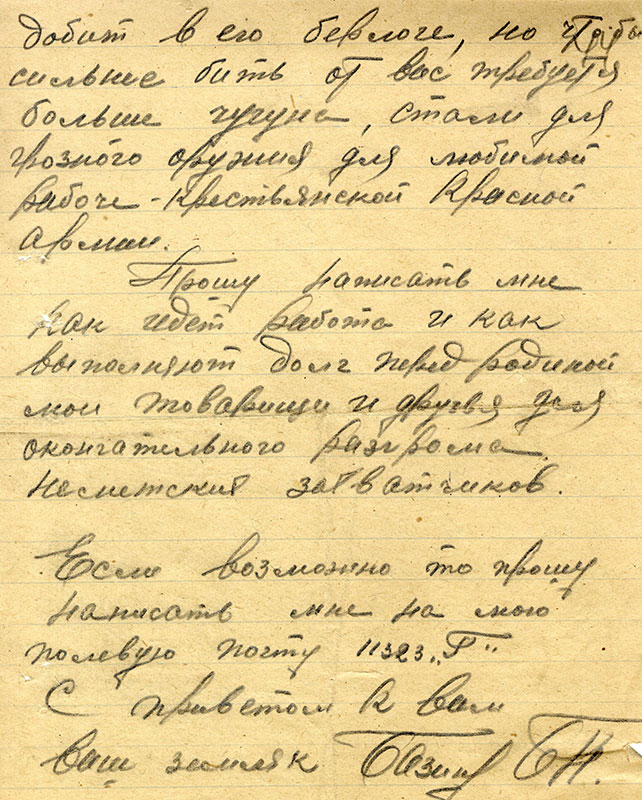 добит в его берлоге, но чтобы
сильнее бить от вас требуется
больше чугуна, стали для
грозного оружия для любимой
рабоче-крестьянской Красной
армии.
Прошу написать мне
как идёт работа и как
выполняют долг перед родиной
мои товарищи и друзья для
окончательного разгрома
немецких захватчиков.
Если возможно то прошу
написать мне на мою
полевую почту 11323 „Г"
С приветом к вам
ваш земляк